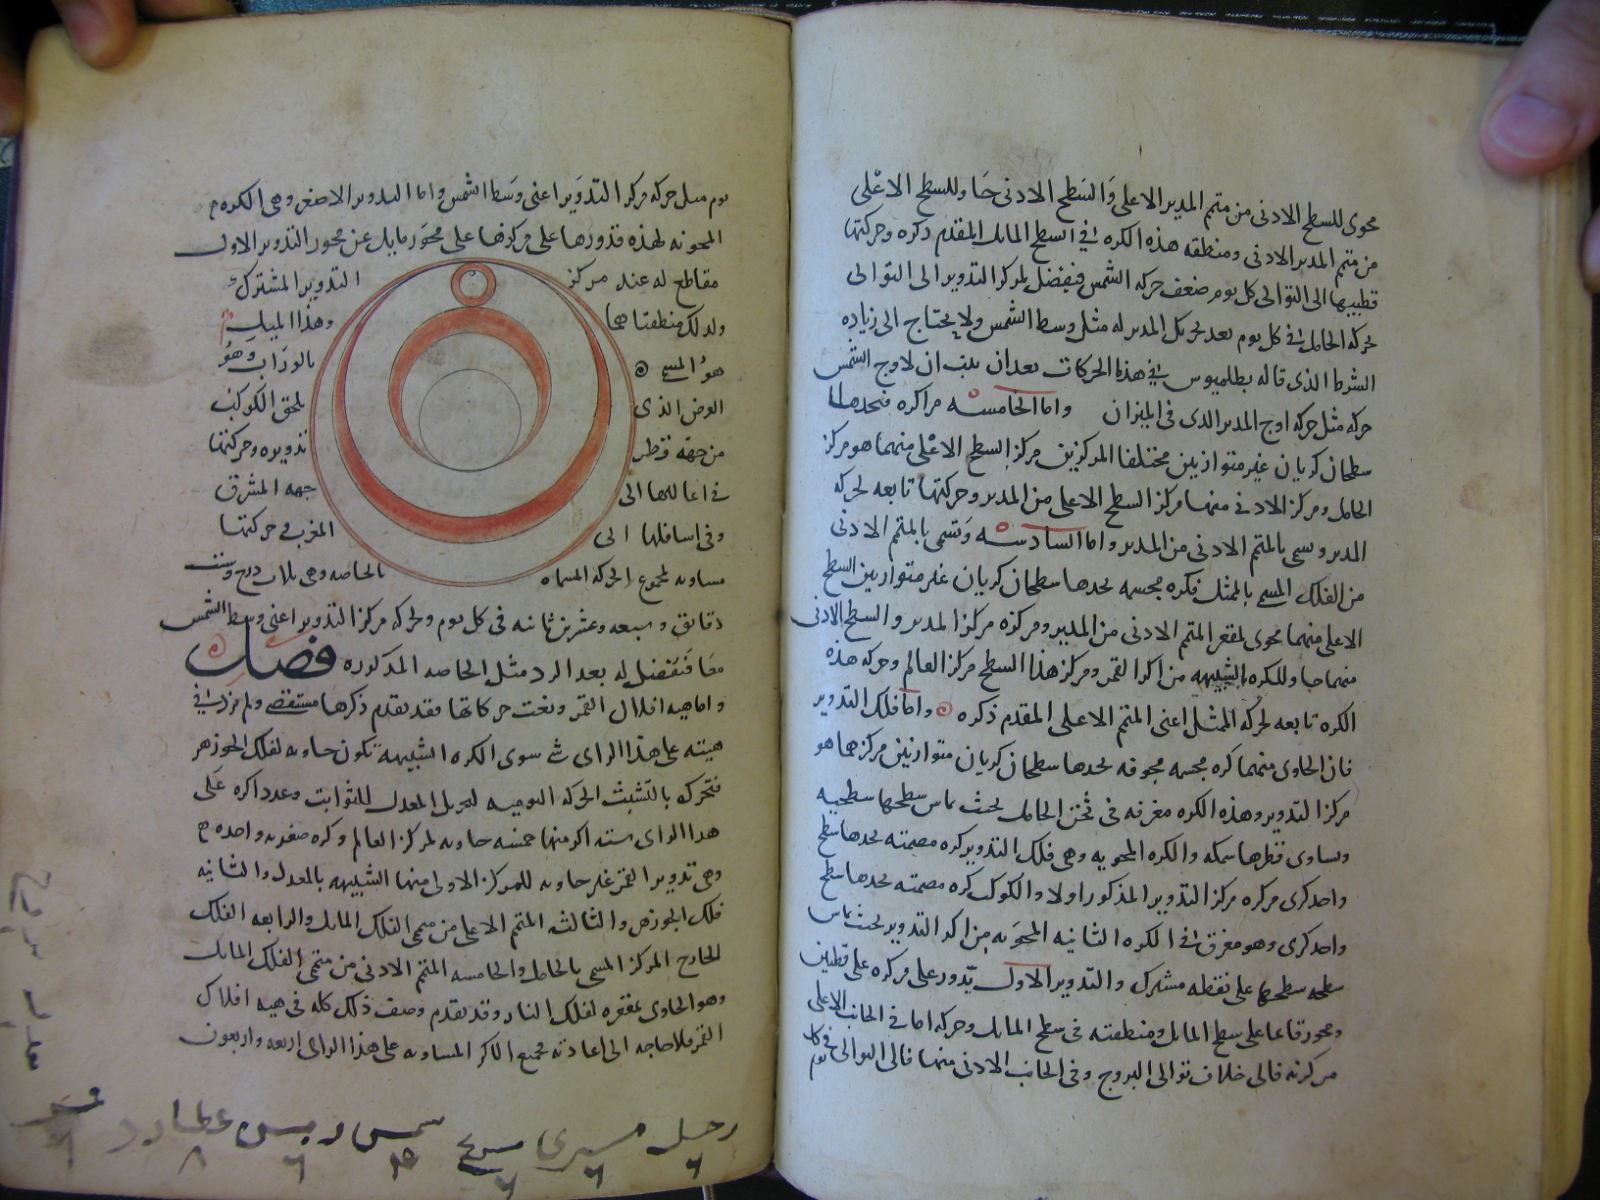 محوى للسطح الادنى من متمم المدير الاعلى والسطح الادنى حاو للسطح الاعلى
من متمم المدير الادنى ومنطقه هذه الكره في السطح المايل المقدم ذكره وحركتها
قطبيها الى التوالى كل يوم ضعف حركه الشمس فيفضل لمركز التدوير الى التوالى
حركه الحامل في كل يوم بعد تحريك المدير له مثل وسط الشمس ولا يحتاج الى زياده
الشرط الذى قاله بطلميوس في هذه الحركات بعد ان يثبت ان لاوج الشمس
حركه مثل حركه اوج المدير الذى في الميزان واما الخامسه مراكره فيحدها
سطحان كريان غير متوازيين مختلفا المركزين مركز السطح الاعلى منهما هو مركز
الحامل ومركز الادنى منهما مركز السطح الاعلى من المدير وحركتها تابعه لحركه
المدير وتسمى بالمتمم الادنى من المدير واما السادسه وتسمى بالمتمم الادنى
من الفلك المسمى بالممثل فكره مجسمه يحدها سطحان كريان غير متوازيين السطح
الاعلى منهما محوى لمقعر المتمم الادنى من المدير ومركزه مركز المدير والسطح الادنى
منهما حاو للكره الشبيهه من اكر القمر ومركز هذا السطح مركز العالم وحركه هذه
الكره تابعه لحركه الممثل اعنى المتمم الاعلى المقدم ذكره واما فلك التدوير
فان الحاوى منهما كره مجسمه مجوفه يحدها سطحان كريان متوازيين مركزهما هو
مركز التدوير وهذه الكره مغرقه فى ثخن الحامل بحيث يماس سطحها سطحيه
ويساوى قطرها سمكه والكره المحويه وهى فلك التدوير كره مصمته يحدها سطح
واحد كرى مركزه مركز التدوير المذكور اولا والكوكب كره مصمته يحدها سطح
واحد كرى وهو مغرق في الكره الثانيه المحويه من اكر التدوير بحيث يماس
سطحه سطحها على نقطه مشترك والتدوير الاول يدور على مركزه على قطبين
ومحور قاما على سطح المايل ومنطقته فى سطح المايل وحركه اما فى الجانب الاعلى
مركزته فالى خلاف توالى البروج وفى الجانب الادنى منها فالى التوالى فى كل يوم
يوم مثل حركه مركز التدوير اعنى وسط الشمس واما التدوير الاصغر وهى الكره
المحويه لهذه فتدورها على مركزها على محور مايل عن محور التدوير الاول
مقاطع له عند مركز التدوير المشترك
ولذلك منطقتاهما وهذا الميل
هو المسمى بالوراب وهو
العرض الذى يلحق الكوكب
من جهه قطر تدويره وحركتها
في اعاليها الى جهه المشرق
وفى اسافلها الى المغرب حركتها
مساويه لمجموع الحركه المسماه بالخاصه وهى ثلاث درج وست
دقايق وسبعه وعشرين ثانيه فى كل يوم ولحركه مركز التدوير اعنى وسط الشمس
معا فيفضل له بعد الرد مثل الخاصه المذكوره فصل
واما هيه افلاك القمر ونعت حركاتها فقد تقدم ذكرها مستقصى ولم نزد في
هيئته على هذا الراى سوى الكره الشبيهه تكون حاويه لفلك الجوزهر
فتحركه بالتشبث الحركه اليوميه لتحريك المعدل للثوابت وعدد اكره على
هذا الراى سته اكر منها خمسه حاويه لمركز العالم وكره صغيره واحده
وهى تدوير القمر غير حاويه للمركز الاولى منها الشبيهه بالمعدل والثانيه
فلك الجوزهر والثالثه المتمم الاعلى من متممى الفلك المايل والرابعه الفلك
الخارج المركز المسمى بالحامل والخامسه المتمم الادنى من متممى الفلك المايل
وهو الحاوى بمقعره لفلك النار وقد تقدم وصف ذلك كله فى هيه افلاك
القمر فلا حاجه الى اعادته فجميع الاكر المساويه على هذا الراى اربعه واربعون
زحل مشترى مريخ شمس عطارد قمر
٦ ٦ ٦ ٦ ٨